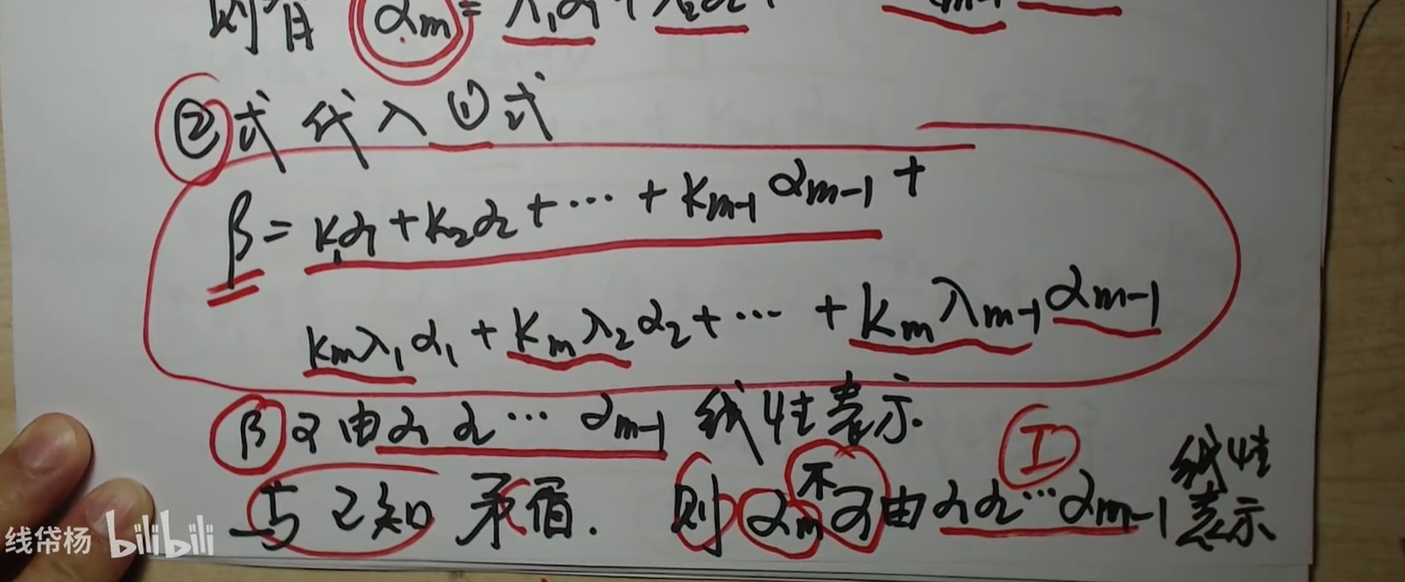 则有 αm = λ1α1 + λ2α2 +
②式代入①式
β = k1α1 + k2α2 + ⋯ + km-1 αm-1 +
kmλ1α1 + kmλ2α2 + ⋯ + kmλm-1αm-1
β可由α1 α2 ⋯ αm-1 线性表示.
与已知矛盾. 则αm不可由α1α2⋯αm-1线性表示
I
线帒杨 bilibili